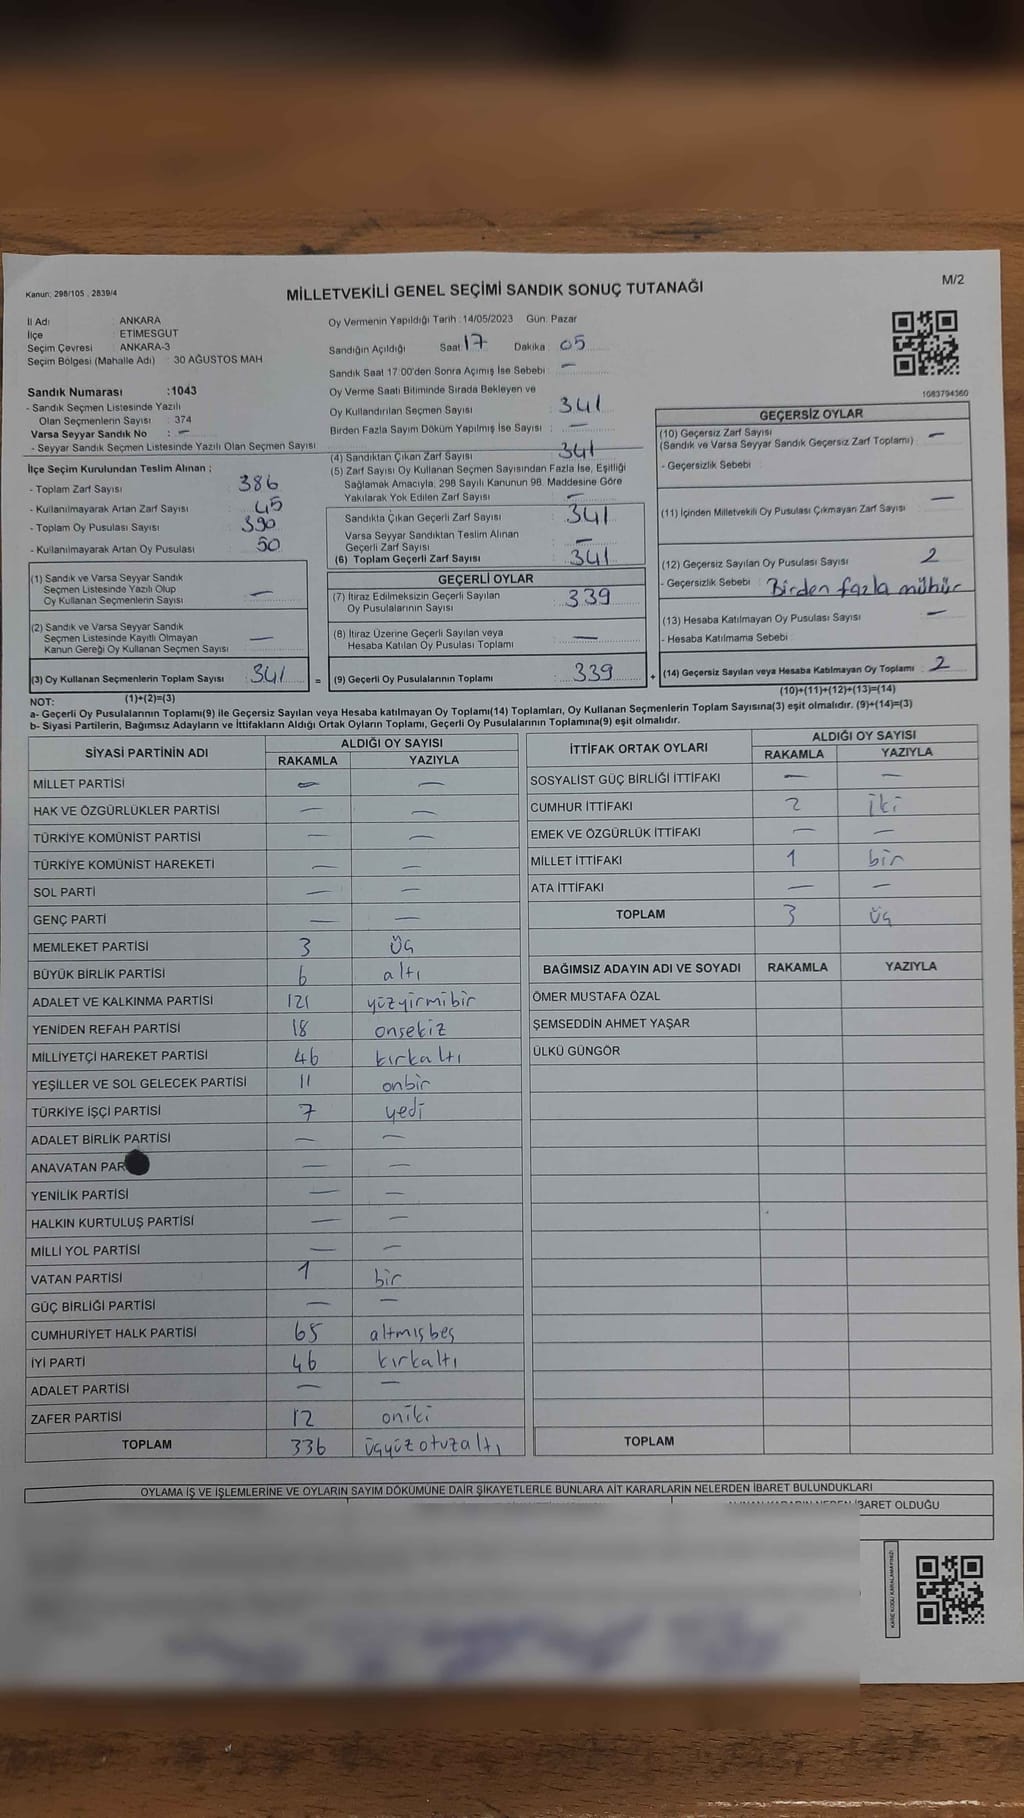 Kanun: 298/105 , 2839/4
MİLLETVEKİLİ GENEL SEÇİMİ SANDIK SONUÇ TUTANAĞI
M/2
İl Adı : ANKARA
İlçe : ETİMESGUT
Seçim Çevresi : ANKARA-3
Seçim Bölgesi (Mahalle Adı) : 30 AĞUSTOS MAH
Sandık Numarası :1043
- Sandık Seçmen Listesinde Yazılı
Olan Seçmenlerin Sayısı : 374
Varsa Seyyar Sandık No : —
- Seyyar Sandık Seçmen Listesinde Yazılı Olan Seçmen Sayısı
İlçe Seçim Kurulundan Teslim Alınan ;
- Toplam Zarf Sayısı : 386
- Kullanılmayarak Artan Zarf Sayısı : 45
- Toplam Oy Pusulası Sayısı : 390
- Kullanılmayarak Artan Oy Pusulası : 50
(1) Sandık ve Varsa Seyyar Sandık
Seçmen Listesinde Yazılı Olup
Oy Kullanan Seçmenlerin Sayısı : —
(2) Sandık ve Varsa Seyyar Sandık
Seçmen Listesinde Kayıtlı Olmayan
Kanun Gereği Oy Kullanan Seçmen Sayısı : —
(3) Oy Kullanan Seçmenlerin Toplam Sayısı : 341 =
(1)+(2)=(3)
Oy Vermenin Yapıldığı Tarih : 14/05/2023 Gün: Pazar
Sandığın Açıldığı Saat 17 Dakika : 05
Sandık Saat 17:00'den Sonra Açımış İse Sebebi : —
Oy Verme Saati Bitiminde Sırada Bekleyen ve
Oy Kullandırılan Seçmen Sayısı : 341
Birden Fazla Sayım Döküm Yapılmış İse Sayısı : —
(4) Sandıktan Çıkan Zarf Sayısı : 341
(5) Zarf Sayısı Oy Kullanan Seçmen Sayısından Fazla İse, Eşitliği
Sağlamak Amacıyla, 298 Sayılı Kanunun 98. Maddesine Göre
Yakılarak Yok Edilen Zarf Sayısı : —
Sandıkta Çıkan Geçerli Zarf Sayısı : 341
Varsa Seyyar Sandıktan Teslim Alınan
Geçerli Zarf Sayısı : —
(6) Toplam Geçerli Zarf Sayısı : 341
GEÇERLİ OYLAR
(7) İtiraz Edilmeksizin Geçerli Sayılan
Oy Pusulalarının Sayısı : 339
(8) İtiraz Üzerine Geçerli Sayılan veya
Hesaba Katılan Oy Pusulası Toplamı : —
(9) Geçerli Oy Pusulalarının Toplamı : 339 +
1083794360
GEÇERSİZ OYLAR
(10) Geçersiz Zarf Sayısı
(Sandık ve Varsa Seyyar Sandık Geçersiz Zarf Toplamı) : —
- Geçersizlik Sebebi :
(11) İçinden Milletvekili Oy Pusulası Çıkmayan Zarf Sayısı : —
(12) Geçersiz Sayılan Oy Pusulası Sayısı : 2
- Geçersizlik Sebebi : Birden fazla mühür
(13) Hesaba Katılmayan Oy Pusulası Sayısı : —
- Hesaba Katılmama Sebebi :
(14) Geçersiz Sayılan veya Hesaba Katılmayan Oy Toplamı : 2
(10)+(11)+(12)+(13)=(14)
NOT:
a- Geçerli Oy Pusulalarının Toplamı(9) ile Geçersiz Sayılan veya Hesaba katılmayan Oy Toplamı(14) Toplamları, Oy Kullanan Seçmenlerin Toplam Sayısına(3) eşit olmalıdır. (9)+(14)=(3)
b- Siyasi Partilerin, Bağımsız Adayların ve İttifakların Aldığı Ortak Oyların Toplamı, Geçerli Oy Pusulalarının Toplamına(9) eşit olmalıdır.
SİYASİ PARTİNİN ADI ALDIĞI OY SAYISI
RAKAMLA YAZIYLA
MİLLET PARTİSİ — —
HAK VE ÖZGÜRLÜKLER PARTİSİ — —
TÜRKİYE KOMÜNİST PARTİSİ — —
TÜRKİYE KOMÜNİST HAREKETİ — —
SOL PARTİ — —
GENÇ PARTİ — —
MEMLEKET PARTİSİ 3 üç
BÜYÜK BİRLİK PARTİSİ 6 altı
ADALET VE KALKINMA PARTİSİ 121 yüzyirmibir
YENİDEN REFAH PARTİSİ 18 onsekiz
MİLLİYETÇİ HAREKET PARTİSİ 46 kırkaltı
YEŞİLLER VE SOL GELECEK PARTİSİ 11 onbir
TÜRKİYE İŞÇİ PARTİSİ 7 yedi
ADALET BİRLİK PARTİSİ — —
ANAVATAN PAR — —
YENİLİK PARTİSİ — —
HALKIN KURTULUŞ PARTİSİ — —
MİLLİ YOL PARTİSİ — —
VATAN PARTİSİ 1 bir
GÜÇ BİRLİĞİ PARTİSİ — —
CUMHURİYET HALK PARTİSİ 65 altmışbeş
İYİ PARTİ 46 kırkaltı
ADALET PARTİSİ — —
ZAFER PARTİSİ 12 oniki
TOPLAM 336 üçyüzotuzaltı
İTTİFAK ORTAK OYLARI ALDIĞI OY SAYISI
RAKAMLA YAZIYLA
SOSYALİST GÜÇ BİRLİĞİ İTTİFAKI — —
CUMHUR İTTİFAKI 2 iki
EMEK VE ÖZGÜRLÜK İTTİFAKI — —
MİLLET İTTİFAKI 1 bir
ATA İTTİFAKI — —
TOPLAM 3 üç
BAĞIMSIZ ADAYIN ADI VE SOYADI RAKAMLA YAZIYLA
ÖMER MUSTAFA ÖZAL
ŞEMSEDDİN AHMET YAŞAR
ÜLKÜ GÜNGÖR
TOPLAM
OYLAMA İŞ VE İŞLEMLERİNE VE OYLARIN SAYIM DÖKÜMÜNE DAİR ŞİKAYETLERLE BUNLARA AİT KARARLARIN NELERDEN İBARET BULUNDUKLARI
İBARET OLDUĞU